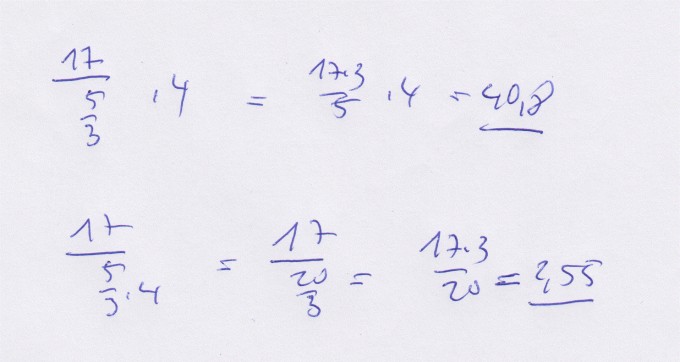 17/(5/3) · 4 = (17·3)/5 · 4 = 40,8
17/(5/3 · 4) = 17/(20/3) = (17·3)/20 = 2,55